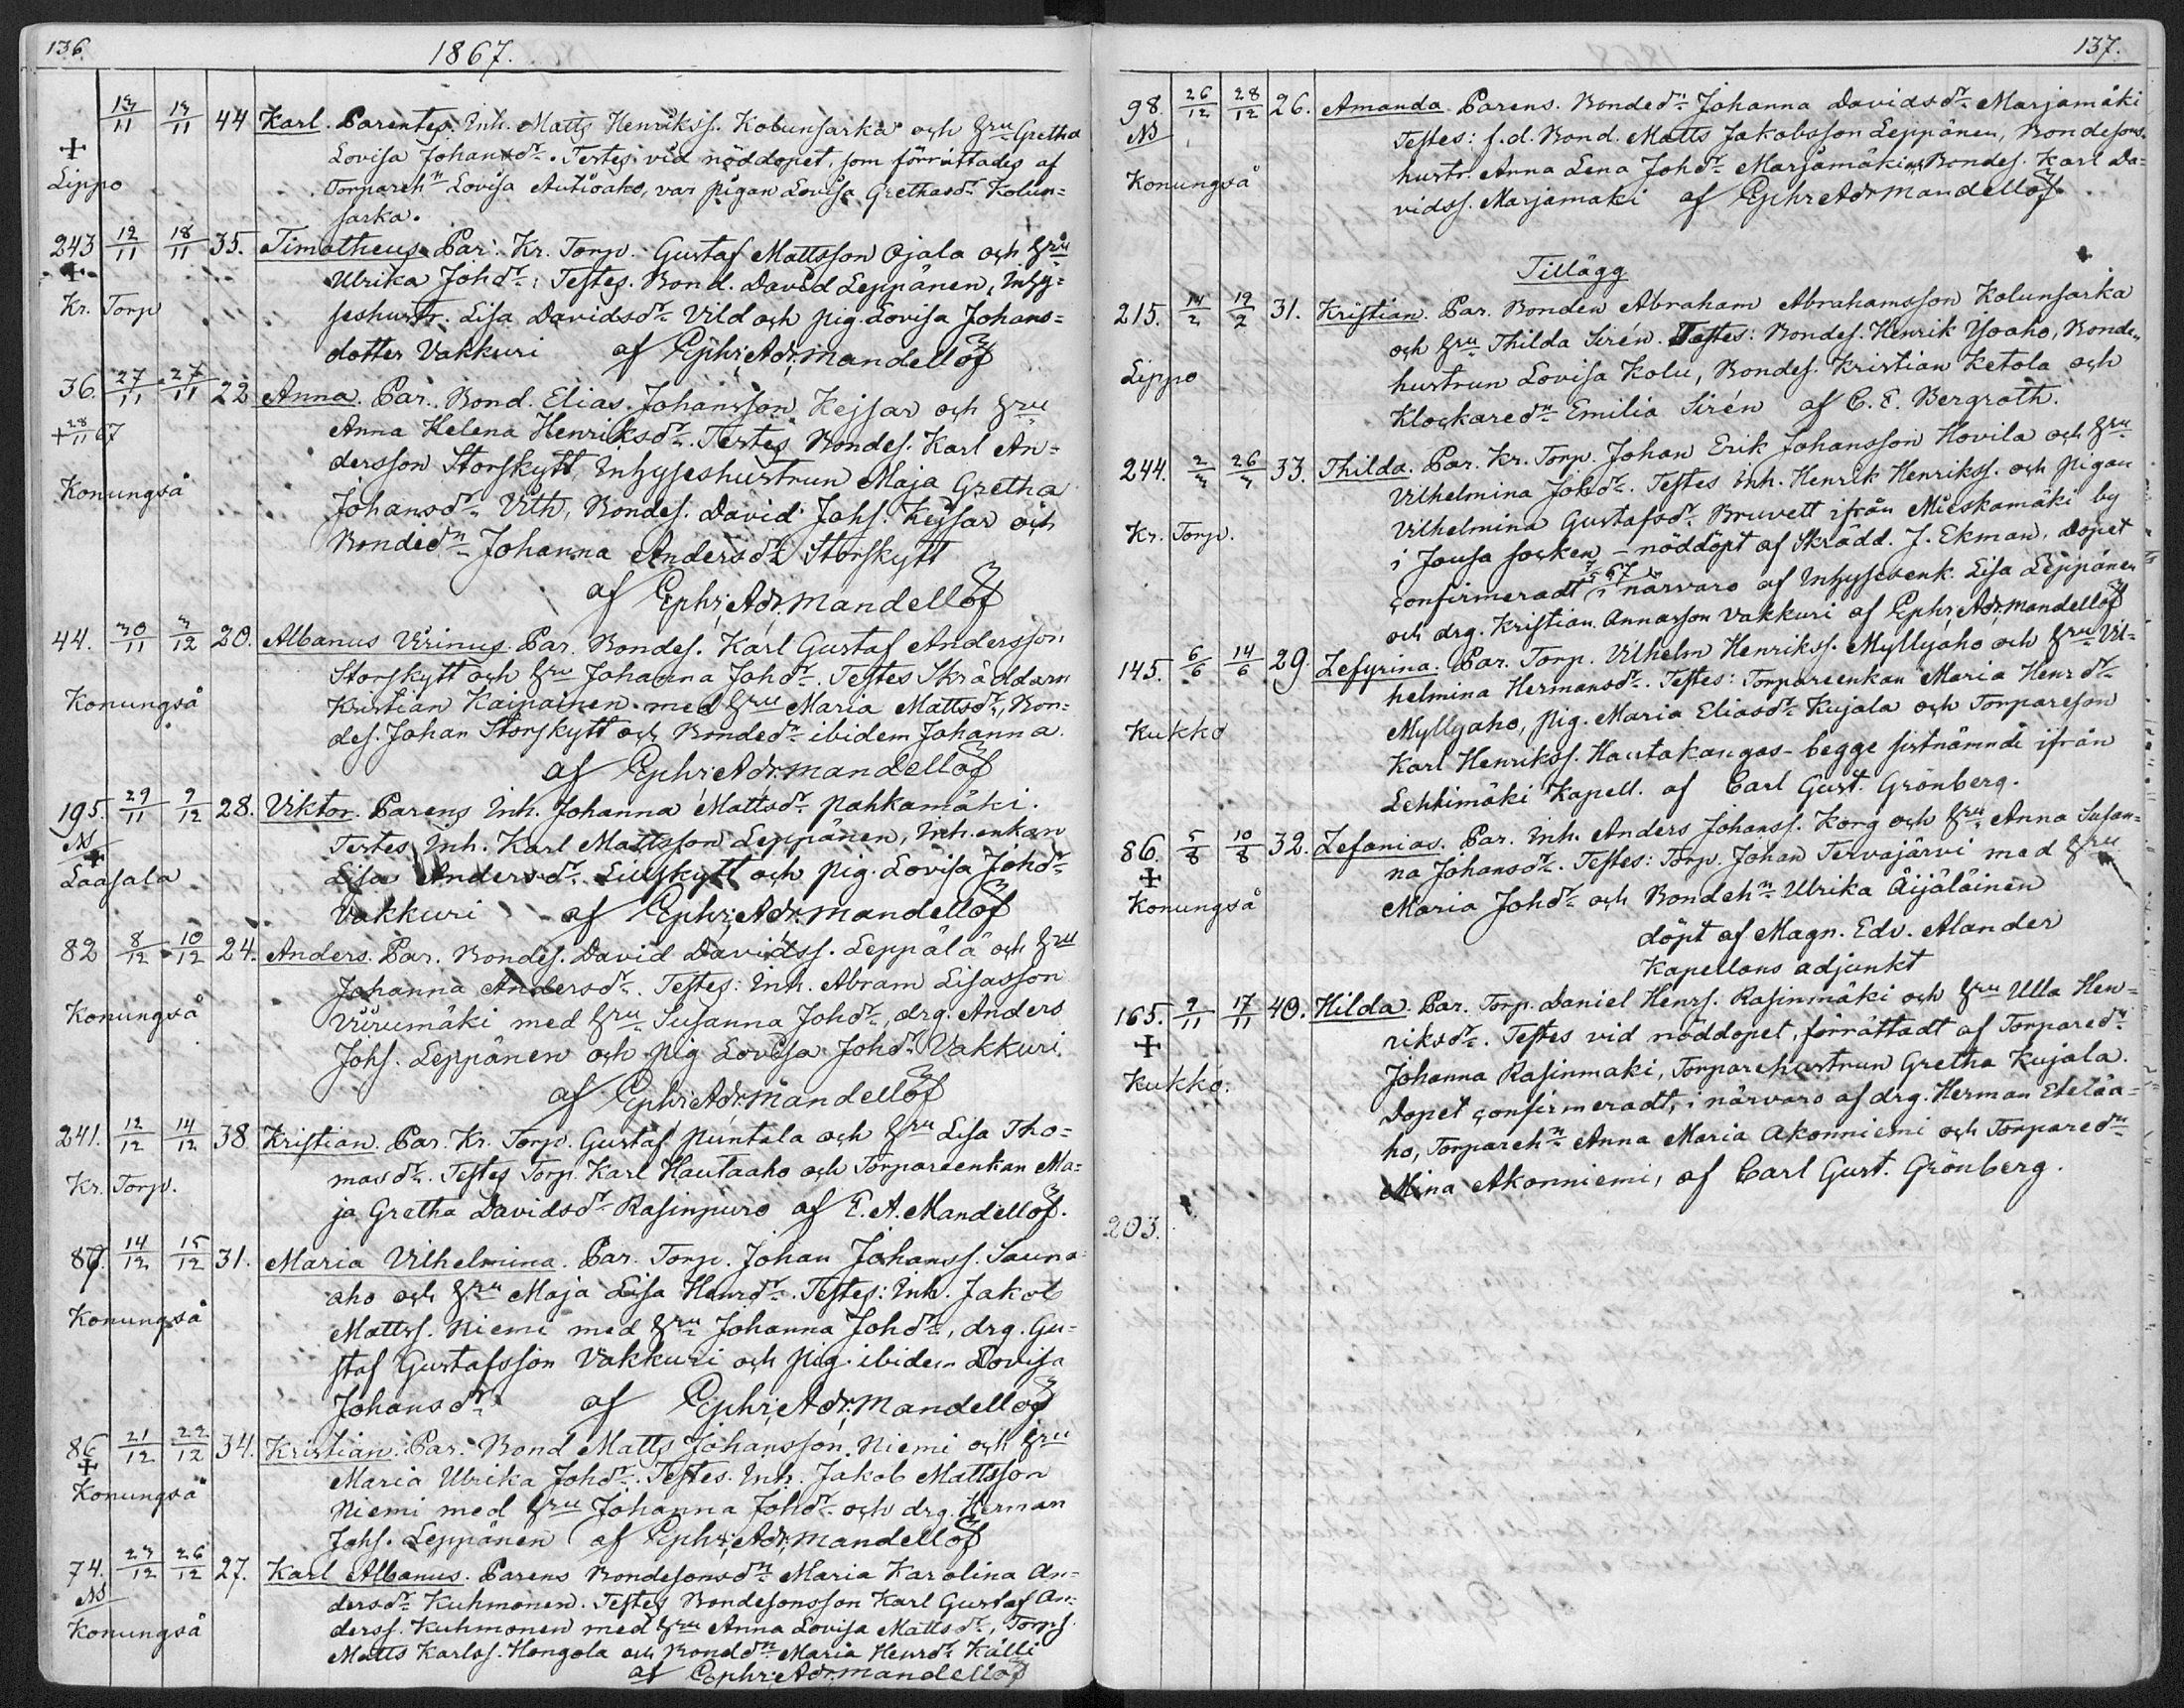 136.
1867.
13/11 13/11 44 Karl. Parentes. Inh. Matts Henrikss. Kolunsarka och hru Gretha
+ Lovisa Johansdr. Testes vid nöddopet, som förrättades af
Lippo Torpareh:n Lovisa Autioaho, var pigan Lovisa Grethasdr Kolun=
sarka.
243 12/11 18/11 35. Timotheus. Par. Kr. Torp. Gustaf Mattsson Ojala och hru
+ Ulrika Johdr. Testes. Bond. David Leppänen, Inhy=
Kr. Torp seshustr. Lisa Davidsdr Vild och pig. Lovisa Johans=
dotter Vakkuri af Ephr. Adr. Mandellöf
36. 27/11 27/11 22 Anna. Par. Bond. Elias Johansson Kejsar och hru
+ 28/11 67 Anna Helena Henriksdr. Testes Bondes. Karl An=
dersson Storskytt, Inhyseshustrun Maja Gretha
Konungså Johansdr Vith, Bondes. David Johs. Kejsar och
Bonded:n Johanna Andersdr Storskytt
af Ephr. Adr. Mandellöf
44. 30/11 3/12 20. Albanus Virinus. Par. Bondes. Karl Gustaf Andersson
Storskytt och hru Johanna Johdr. Testes Skräddarn
Konungså Kristian Kainainen med hru Maria Mattsdr, Bon=
des. Johan Storskytt och Bonded:r ibidem Johanna.
af Ephr. Adr. Mandellöf
195. 29/11 9/12 28. Viktor. Parens Inh. Johanna Mattsdr Pahkamäki.
N + Testes Inh. Karl Mattsson Leppänen, Inh. enkan
Laasala Lisa Andersdr Liuskytt och pig. Lovisa Johdr
Vakkuri af Ephr. Adr. Mandellöf
82 8/12 10/12 24. Anders. Par. Bondes. David Davidss. Leppälä och hru
Johanna Andersdr. Testes: Inh. Abram Lisasson
Konungså Viirumäki med hru Susanna Johdr, drg. Anders
Johs. Leppänen och pig Lovisa Johdr Vakkuri.
af Ephr. Adr. Mandellöf
241. 12/12 14/12 38. Kristian. Par. Kr. Torp. Gustaf Puntala och hru Lisa Tho=
Kr. Torp. masdr. Testes Torp. Karl Hautaaho och Torpareenkan Ma=
ja Gretha Davidsdr Rasinpuro af E. A. Mandellöf.
87. 14/12 15/12 31. Maria Vilhelmina. Par. Torp. Johan Johanss. Sauna=
aho och hru Maja Lisa Henrdr. Testes: Inh. Jakob
Konungså Mattss. Niemi med hru Johanna Johdr, drg. Gu=
staf Gustafsson Vakkuri och pig. ibidem Lovisa
Johansdr af Ephr. Adr. Mandellöf
86 21/12 22/12 34. Kristian. Par. Bond Matts Johansson Niemi och hru
+ Maria Ulrika Johdr. Testes. Inh. Jakob Mattsson
Konungså Niemi med hru Johanna Johdr och drg. Herman
Johs. Leppänen af Ephr. Adr. Mandellöf
74. 23/12 26/12 27. Karl Albanus. Parens Bondesonsdr Maria Karolina An=
N dersdr Kuhmonen. Testes Bondesonsson Karl Gustaf An=
Konungså derss. Kuhmonen med hru Anna Lovisa Mattsdr, Torps.
Matts Karlss. Hongola och Bondd:n Maria Henrdr Källi
af Ephr. Adr. Mandellöf
137.
98. 26/12 28/12 26. Amanda. Parens. Bonded:n Johanna Davidsdr Marjamäki
N Testes: f.d. Bond. Matts Jakobsson Leppänen, Bondesons=
Konungså hustr. Anna Lena Johdr Marjamäki och Bondes. Karl Da=
vidss. Marjamäki af Ephr. Adr. Mandellöf
Tillägg
215. 14/2 19/2 31. Kristian. Par. Bonden Abraham Abrahamsson Kolunsarka
och hru Thilda Sirén. Testes: Bondes. Henrik Ysoaho, Bonde=
Lippo hustrun Lovisa Kolu, Bondes. Kristian Ketola och
Klockared:n Emilia Sirén af C. E. Bergroth.
244. 2/3 26/3 33. Thilda. Par. Kr. Torp. Johan Erik Johansson Hovila och hru
Vilhelmina Johdr. Testes Inh. Henrik Henrikss. och pigan
Kr. Torp. Vilhelmina Gustafsdr Bruvett ifrån Mieskamäki by
i Jousa socken - nöddöpt af Skrädd. J. Ekman, dopet
confirmeradt 7/5 67 i närvaro af Inhysesenk. Lisa Leppänen
och drg. Kristian Annasson Vakkuri af Ephr. Adr. Mandellöf
145. 6/6 14/6 29. Zefyrina. Par. Torp. Vilhelm Henrikss. Myllyaho och hru Vil=
helmina Hermansdr. Testes: Torpareenkan Maria Henrdr
Kukko Myllyaho, pig. Maria Eliasdr Kujala och Torpareson
Karl Henrikss. Hautakangas - begge sistnämnde ifrån
Lehtimäki Kapell. af Carl Gust. Grönberg.
86. 5/8 10/8 32. Zefanias. Par. Inh. Anders Johanss. Korg och hru Anna Susan=
+ na Johansdr. Testes: Torp. Johan Tervajärvi med hru
Konungså Maria Johdr och Bondeh:n Ulrika Äijäläinen
döpt af Magn. Edv. Alander
Kapellans adjunkt
165. 9/11 17/11 40. Hilda. Par. Torp. Daniel Henrs. Rasinmäki och hru Ulla Hen=
+ riksdr. Testes vid nöddopet, förrättadt af Torpared:n
Kukko. Johanna Rasinmaki, Torparehustrun Gretha Kujala.
Dopet confirmeradt, i närvaro af drg. Herman Eteläa=
ho, Torpareh:n Anna Maria Akonniemi och Torpared:n
Mina Akonniemi, af Carl Gust. Grönberg.
203.